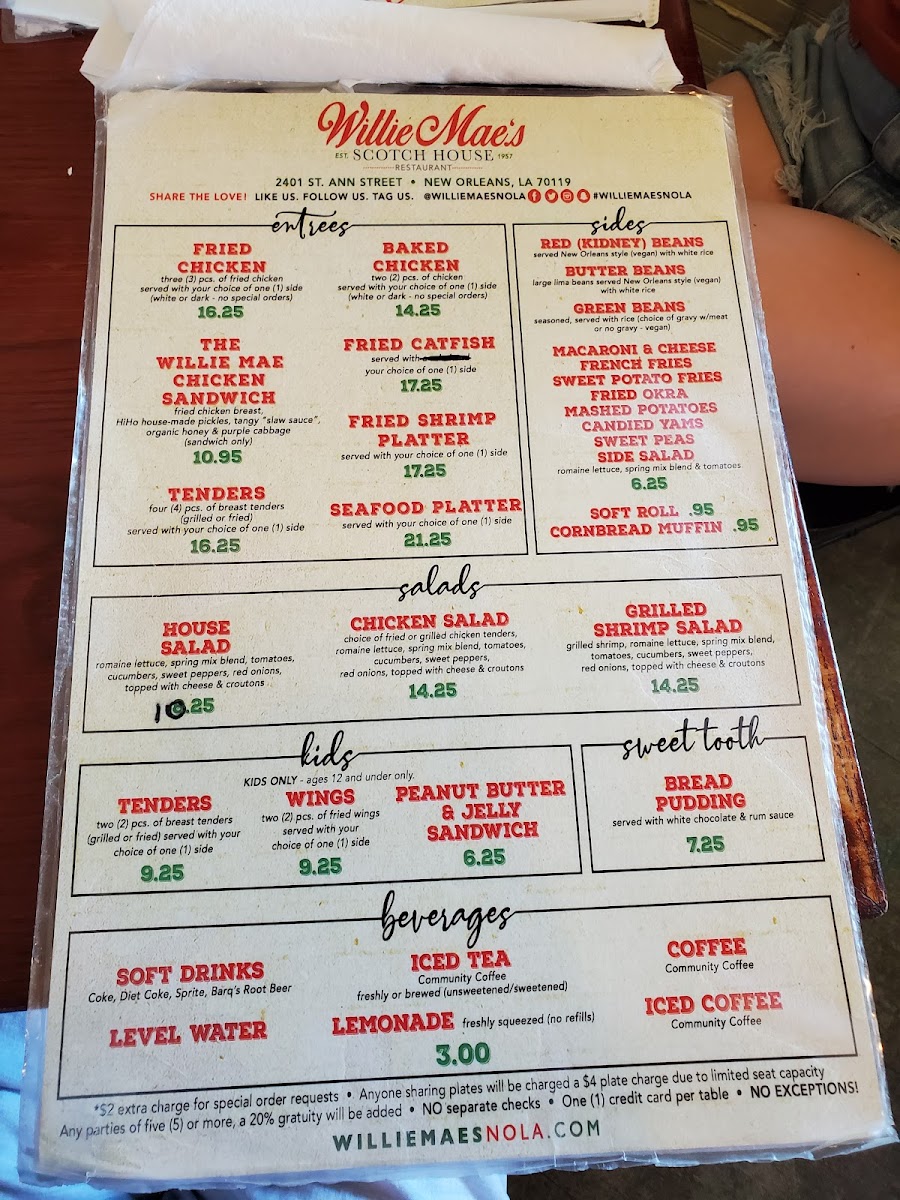 Willie Mae's
EST. SCOTCH HOUSE 1957
RESTAURANT
2401 ST. ANN STREET • NEW ORLEANS, LA 70119
SHARE THE LOVE! LIKE US. FOLLOW US. TAG US. @WILLIEMAESNOLA #WILLIEMAESNOLA
entrees
FRIED
CHICKEN
three (3) pcs. of fried chicken
served with your choice of one (1) side
(white or dark - no special orders)
16.25
THE
WILLIE MAE
CHICKEN
SANDWICH
fried chicken breast,
HiHo house-made pickles, tangy "slaw sauce",
organic honey & purple cabbage
(sandwich only)
10.95
TENDERS
four (4) pcs. of breast tenders
(grilled or fried)
served with your choice of one (1) side
16.25
BAKED
CHICKEN
two (2) pcs. of chicken
served with your choice of one (1) side
(white or dark - no special orders)
14.25
FRIED CATFISH
served with
your choice of one (1) side
17.25
FRIED SHRIMP
PLATTER
served with your choice of one (1) side
17.25
SEAFOOD PLATTER
served with your choice of one (1) side
21.25
sides
RED (KIDNEY) BEANS
served New Orleans style (vegan) with white rice
BUTTER BEANS
large lima beans served New Orleans style (vegan)
with white rice
GREEN BEANS
seasoned, served with rice (choice of gravy w/meat
or no gravy - vegan)
MACARONI & CHEESE
FRENCH FRIES
SWEET POTATO FRIES
FRIED OKRA
MASHED POTATOES
CANDIED YAMS
SWEET PEAS
SIDE SALAD
romaine lettuce, spring mix blend & tomatoes
6.25
SOFT ROLL .95
CORNBREAD MUFFIN .95
salads
HOUSE
SALAD
romaine lettuce, spring mix blend, tomatoes,
cucumbers, sweet peppers, red onions,
topped with cheese & croutons
10.25
CHICKEN SALAD
choice of fried or grilled chicken tenders,
romaine lettuce, spring mix blend, tomatoes,
cucumbers, sweet peppers,
red onions, topped with cheese & croutons
14.25
GRILLED
SHRIMP SALAD
grilled shrimp, romaine lettuce, spring mix blend,
tomatoes, cucumbers, sweet peppers,
red onions, topped with cheese & croutons
14.25
kids
KIDS ONLY - ages 12 and under only.
TENDERS
two (2) pcs. of breast tenders
(grilled or fried) served with your
choice of one (1) side
9.25
WINGS
two (2) pcs. of fried wings
served with your
choice of one (1) side
9.25
PEANUT BUTTER
& JELLY
SANDWICH
6.25
sweet tooth
BREAD
PUDDING
served with white chocolate & rum sauce
7.25
beverages
SOFT DRINKS
Coke, Diet Coke, Sprite, Barq's Root Beer
LEVEL WATER
ICED TEA
Community Coffee
freshly or brewed (unsweetened/sweetened)
LEMONADE freshly squeezed (no refills)
3.00
COFFEE
Community Coffee
ICED COFFEE
Community Coffee
*$2 extra charge for special order requests • Anyone sharing plates will be charged a $4 plate charge due to limited seat capacity
Any parties of five (5) or more, a 20% gratuity will be added • NO separate checks • One (1) credit card per table • NO EXCEPTIONS!
WILLIEMAESNOLA.COM